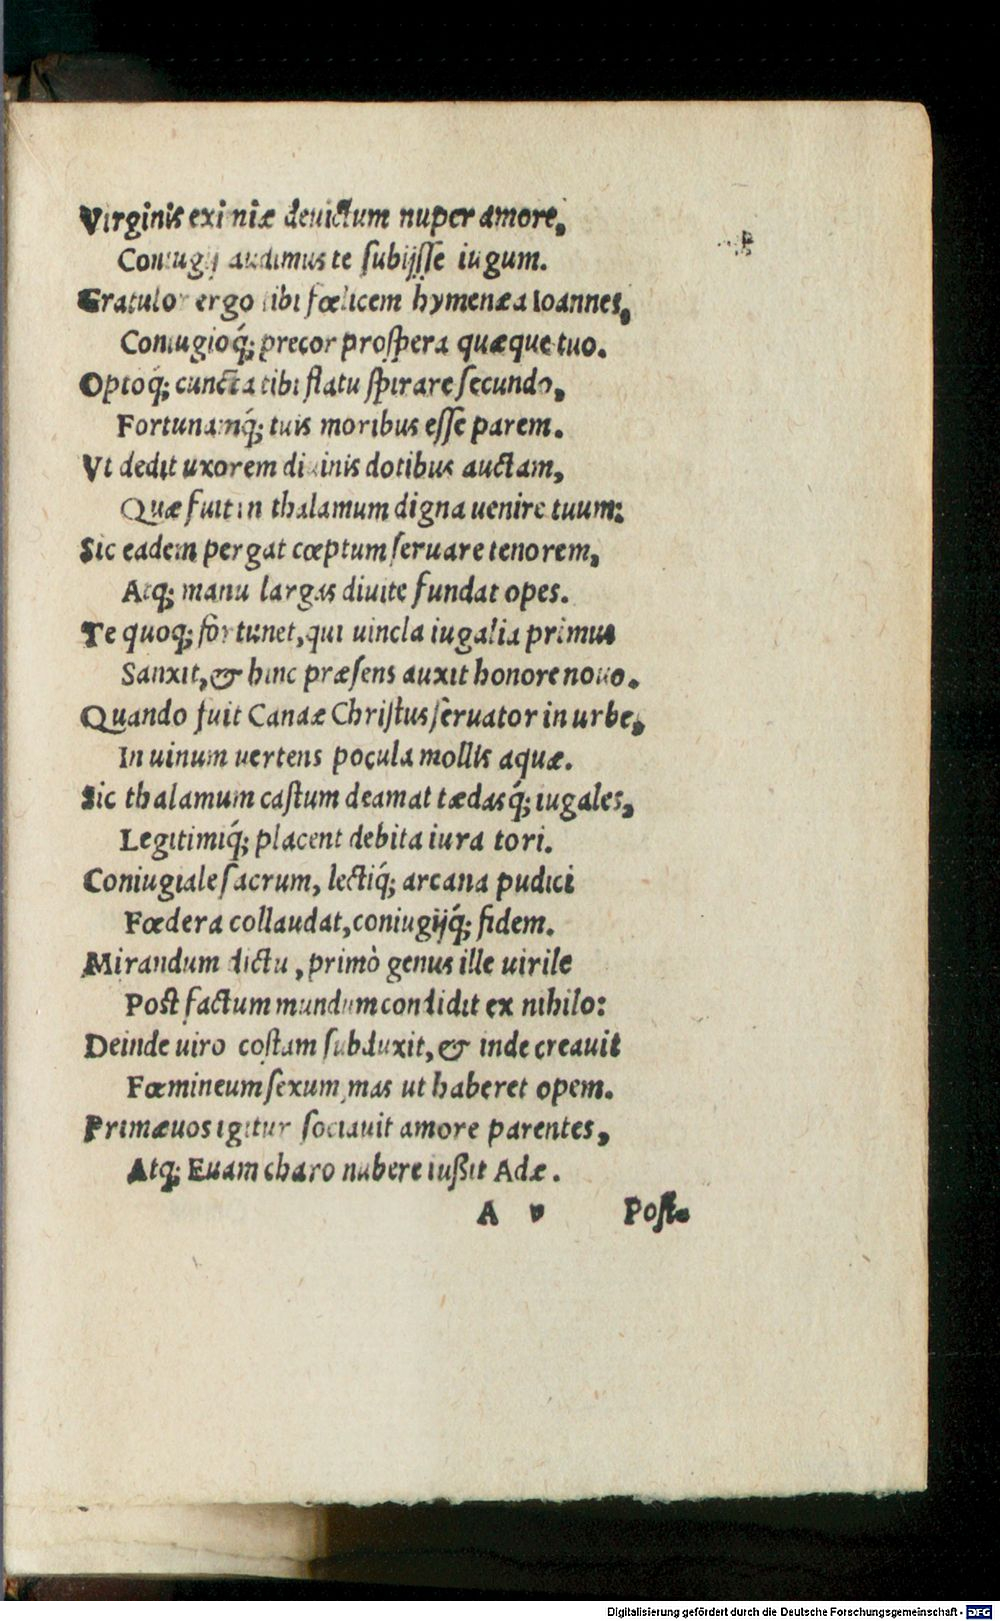 Virginis eximiæ deuictum nuper amore,
Coniugij audimus te subijsse iugum.
Gratulor ergo tibi fœlicem hymenæa Ioannes,
Coniugioq́; precor prospera quæque tuo.
Optoq́; cuncta tibi flatu spirare secundo,
Fortunamq́; tuis moribus esse parem.
Vt dedit uxorem diuinis dotibus auctam,
Quæ fuit in thalamum digna uenire tuum:
Sic eadem pergat cœptum seruare tenorem,
Atq; manu largas diuite fundat opes.
Te quoq; fortunet, qui uincla iugalia primus
Sanxit, & hinc præsens auxit honore nouo.
Quando fuit Canaæ Christus seruator in urbe,
In uinum uertens pocula mollis aquæ.
Sic thalamum castum deamat tædasq́; iugales,
Legitimiq́; placent debita iura tori.
Coniugiale sacrum, lectiq́; arcana pudici
Fœdera collaudat, coniugijq́; fidem.
Mirandum dictu, primò genus ille uirile
Post factum mundum condidit ex nihilo:
Deinde uiro costam subduxit, & inde creauit
Fœmineum sexum, mas ut haberet opem.
Primæuos igitur sociauit amore parentes,
Atq; Euam charo nubere iußit Adæ.
A v Post
Digitalisierung gefördert durch die Deutsche Forschungsgemeinschaft - DFG